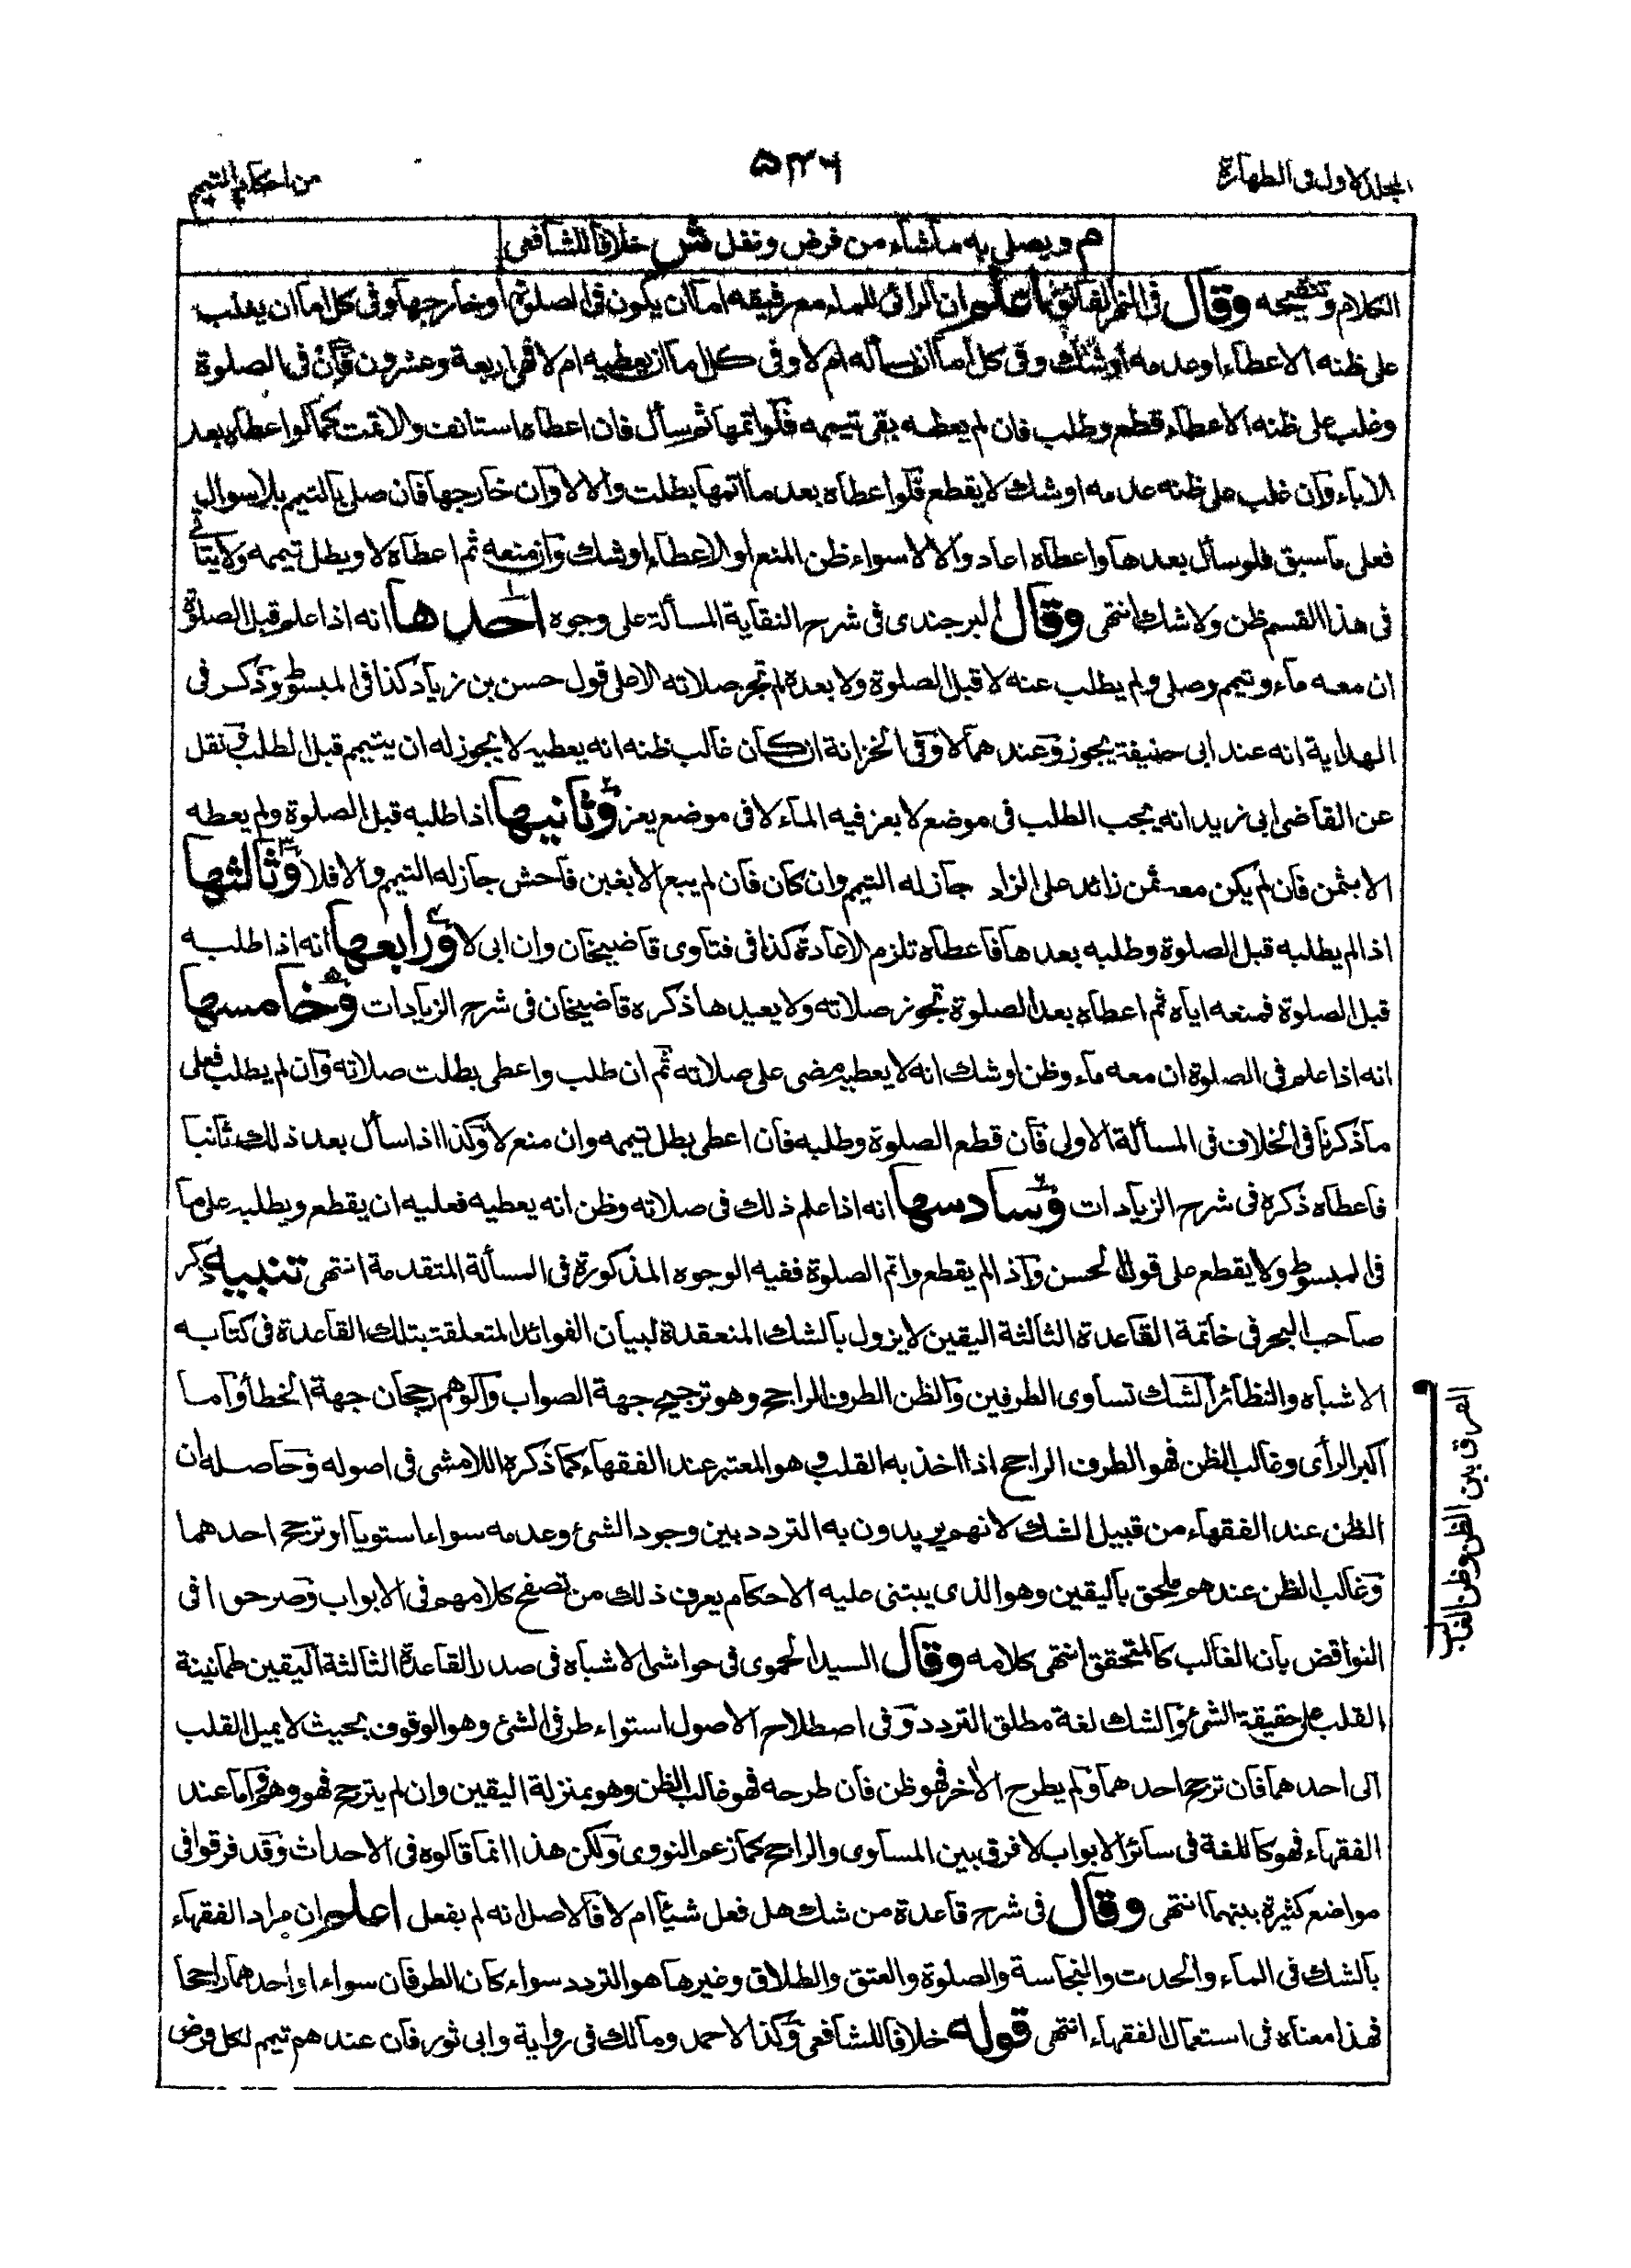 المجلد الاول فى الطهارة
٥٣٦
من احكام التيمم
م ويصلى به ما شاء من فرض ونفل ش خلافا للشافعى
الكلام وتنقيحه وقال فى النهر الفائق اعلم ان الرائى للماء مع رفيقه اما ان يكون فى الصلوة او خارجها وفى كل اما ان يغلب
على ظنه الاعطاء او عدمه او شك وفى كل اما ان يسأله ام لا وفى كل اما ان يعطيه ام لا فهى اربعة وعشرون فان فى الصلوة
وغلب على ظنه الاعطاء قطع وطلب فان لم يعطه بقى تيممه فلو اتمها ثم سأل فان اعطاه استانف والا تمت كما لو اعطاه بعد
الاباء وان غلب على ظنه عدمه او شك لا يقطع فلو اعطاه بعد ما اتمها بطلت والا لا وان خارجها فان صلى بالتيمم بلا سوال
فعلى ما سبق فلو سأل بعدها واعطاه اعاد والا لا سواء ظن المنع او الاعطاء او شك وان منعه ثم اعطاه لا وبطل تيممه ولا يتأتى
فى هذا القسم ظن ولا شك انتهى وقال البرجندى فى شرح النقاية المسألة على وجوه احدها انه اذا علم قبل الصلوة
ان معه ماء وتيمم وصلى ولم يطلب عنه لا قبل الصلوة ولا بعده لم تجز صلاته الا على قول حسن بن زياد كذا فى المبسوط وذكر فى
الهداية انه عند ابى حنيفة يجوز وعندهما لا وفى الخزانة ان كان غالب ظنه انه يعطيه لا يجوز له ان يتيمم قبل الطلب ونقل
عن القاضى ابى زيد انه يجب الطلب فى موضع لا يعز فيه الماء لا فى موضع يعز وثانيها اذا طلبه قبل الصلوة ولم يعطه
الا بثمن فان لم يكن معه ثمن زائد على الزاد جاز له التيمم وان كان فان لم يبع الا بغبن فاحش جاز له التيمم والا فلا وثالثها
اذا لم يطلبه قبل الصلوة وطلبه بعدها فاعطاه تلزم الاعادة كذا فى فتاوى قاضيخان وان ابى لا ورابعها انه اذا طلبه
قبل الصلوة فمنعه اياه ثم اعطاه بعد الصلوة تجوز صلاته ولا يعيدها ذكره قاضيخان فى شرح الزيادات وخامسها
انه اذا علم فى الصلوة ان معه ماء وظن او شك انه لا يعطيه مضى على صلاته ثم ان طلب واعطى بطلت صلاته وان لم يطلب فعلى
ما ذكرنا فى الخلاف فى المسألة الاولى فان قطع الصلوة وطلبه فان اعطى بطل تيممه وان منع لا وكذا اذا سأل بعد ذلك ثانيا
فاعطاه ذكره فى شرح الزيادات وسادسها انه اذا علم ذلك فى صلاته وظن انه يعطيه فعليه ان يقطع ويطلبه على ما
فى المبسوط ولا يقطع على قول الحسن واذا لم يقطع واتم الصلوة ففيه الوجوه المذكورة فى المسألة المتقدمة انتهى تنبيه ذكر
صاحب البحر فى خاتمة القاعدة الثالثة اليقين لا يزول بالشك المنعقدة لبيان الفوائد المتعلقة بتلك القاعدة فى كتابه
الاشباه والنظائر الشك تساوى الطرفين والظن الطرف الراجح وهو ترجيح جهة الصواب والوهم رجحان جهة الخطأ واما
اكبر الرأى وغالب الظن فهو الطرف الراجح اذا اخذ به القلب وهو المعتبر عند الفقهاء كما ذكره اللامشى فى اصوله وحاصله ان
الظن عند الفقهاء من قبيل الشك لانهم يريدون به التردد بين وجود الشئ وعدمه سواء استويا او ترجح احدهما
وغالب الظن عندهم ملحق باليقين وهو الذى يبتنى عليه الاحكام يعرف ذلك من تصفح كلامهم فى الابواب وصرحوا فى
النواقض بان الغالب كالمتحقق انتهى كلامه وقال السيد الحموى فى حواشى الاشباه فى صدر القاعدة الثالثة اليقين طمانينة
القلب على حقيقة الشئ والشك لغة مطلق التردد وفى اصطلاح الاصول استواء طرفى الشئ وهو الوقوف بحيث لا يميل القلب
الى احدهما فان ترجح احدهما ولم يطرح الاخر فهو ظن فان طرحه فهو غالب الظن وهو بمنزلة اليقين وان لم يترجح فهو وهم واما عند
الفقهاء فهو كاللغة فى سائر الابواب لا فرق بين المساوى والراجح كما زعم النووى ولكن هذا انما قالوه فى الاحداث وقد فرقوا فى
مواضع كثيرة بينهما انتهى وقال فى شرح قاعدة من شك هل فعل شيئا ام لا فالاصل انه لم يفعل اعلم ان مراد الفقهاء
بالشك فى الماء والحدث والنجاسة والصلوة والعتق والطلاق وغيرها هو التردد سواء كان الطرفان سواء او احدهما راجحا
فهذا معناه فى استعمال الفقهاء انتهى قوله خلافا للشافعى وكذا لاحمد ومالك فى رواية وابى ثور فان عندهم تيمم لكل فرض
الفرق بين الظن وظن الغالب